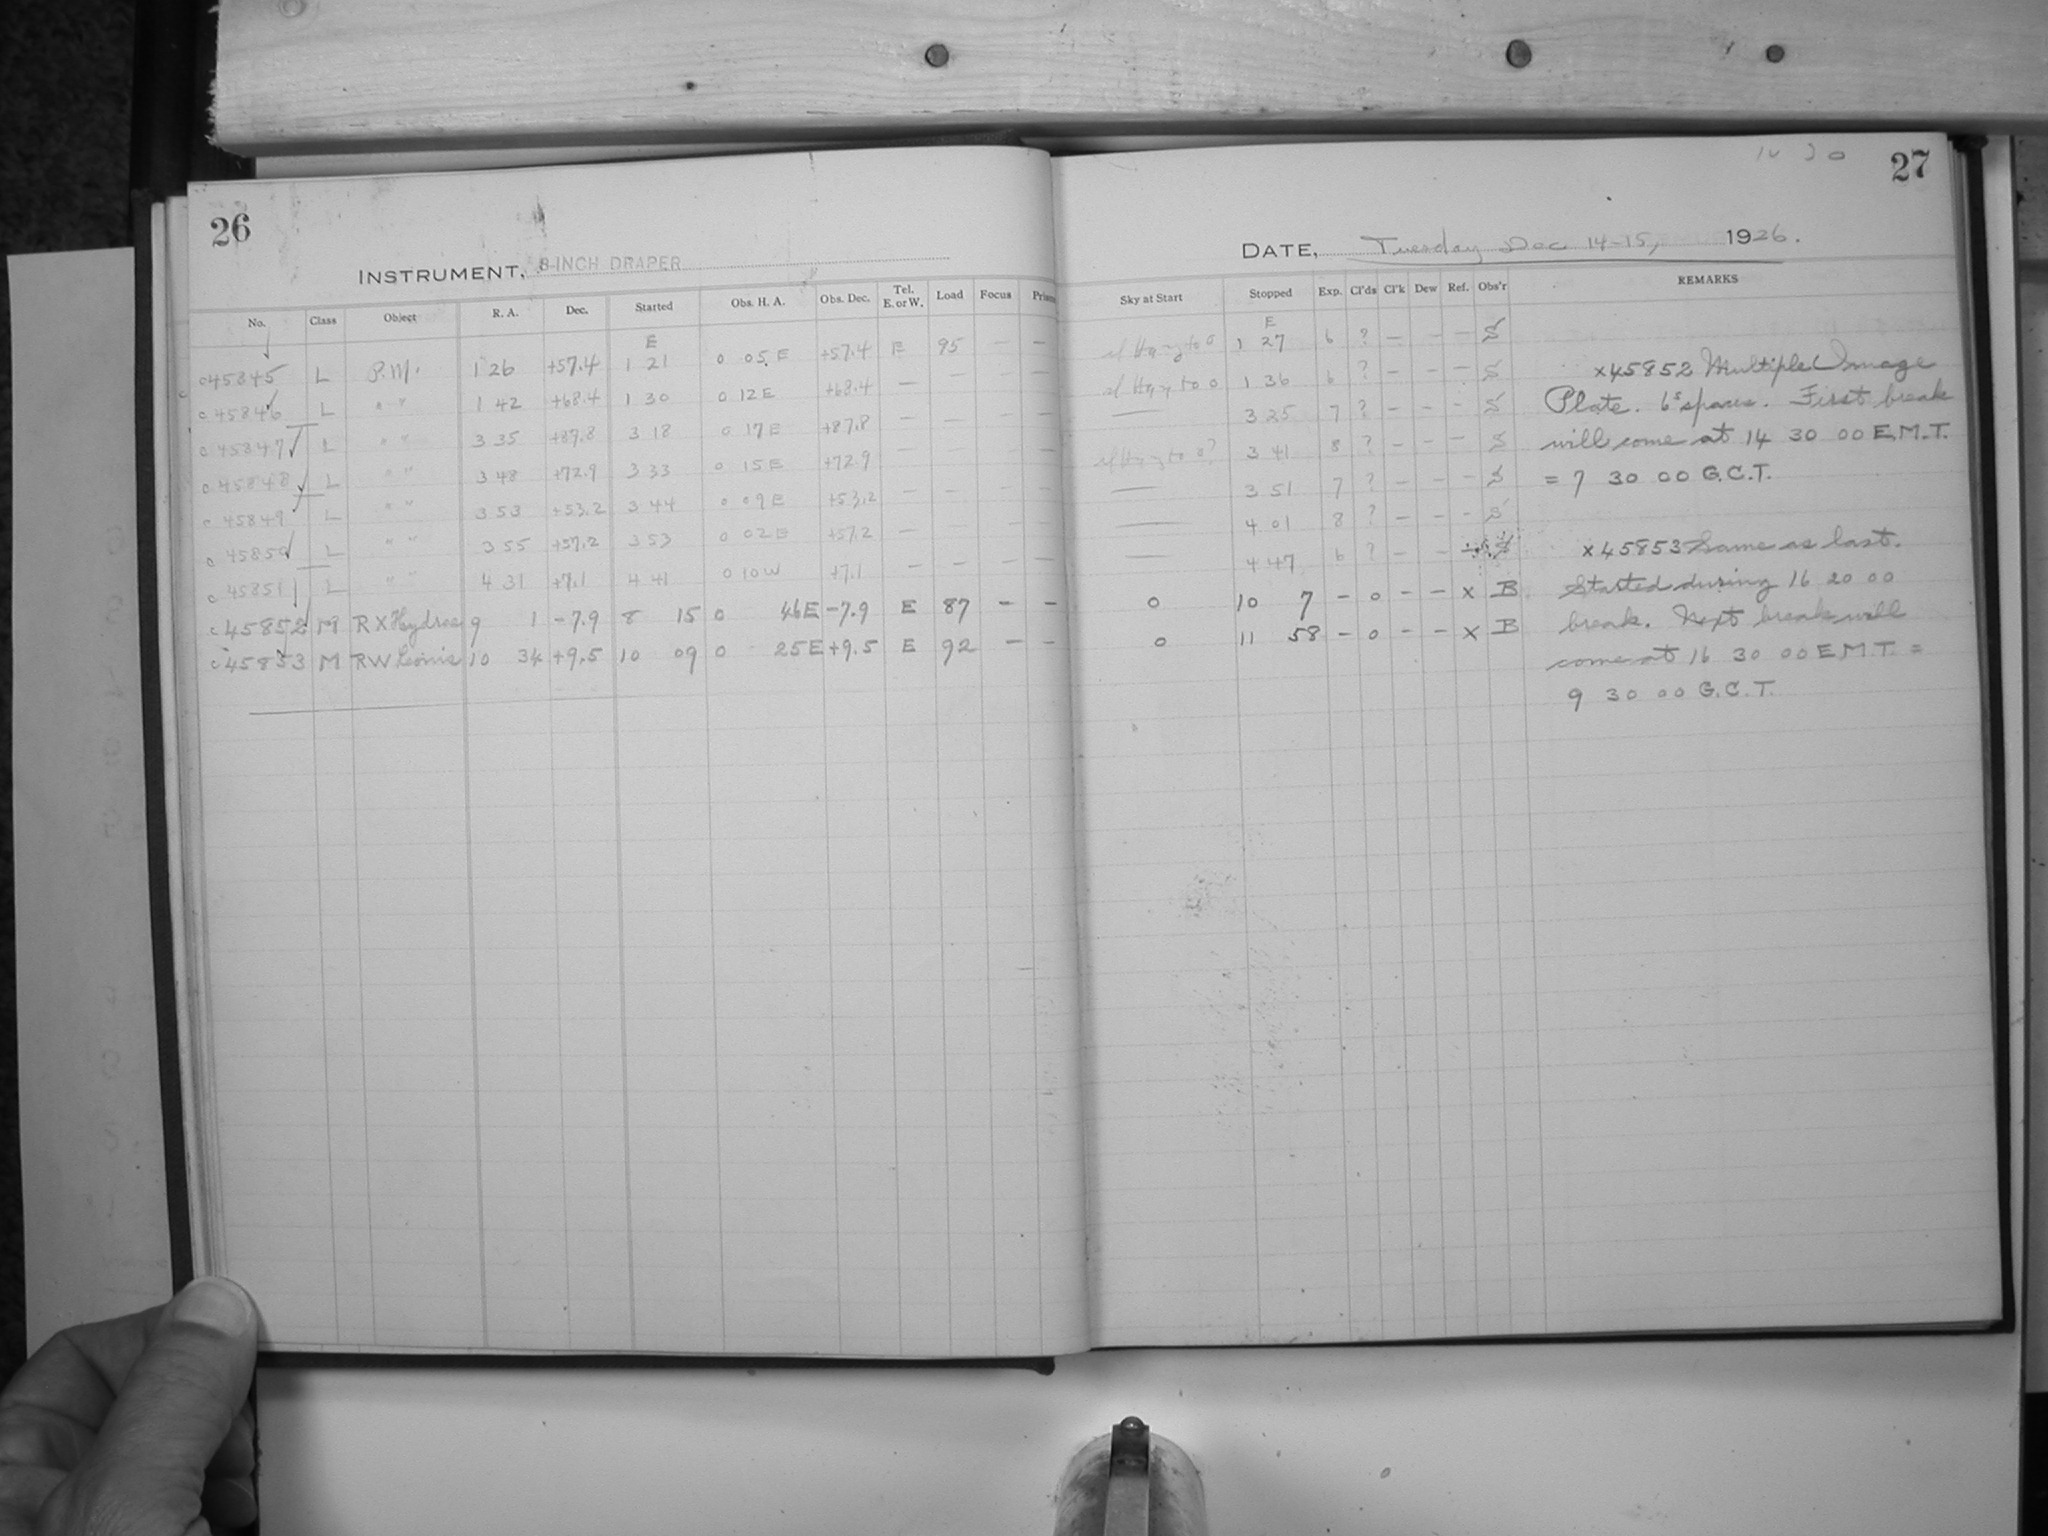 26
INSTRUMENT, 8-INCH DRAPER
No. Class Object R. A. Dec. Started Obs. H. A. Obs. Dec. Tel. E. or W. Load Focus Prism
E
c45845 L P.M. 1 26 +57.4 1 21 0 05 E +57.4 E 95 — —
c45846 L " " 1 42 +68.4 1 30 0 12 E +68.4 — — — —
c45847 L " " 3 35 +87.8 3 18 0 17 E +87.8 — — — —
c45848 L " " 3 48 +72.9 3 33 0 15 E +72.9 — — — —
c45849 L " " 3 53 +53.2 3 44 0 09 E +53.2 — — — —
c45850 L " " 3 55 +57.2 3 53 0 02 E +57.2 — — — —
c45851 L " " 4 31 +7.1 4 41 0 10 W +7.1 — — — —
c45852 M RX Hydrae 9 1 -7.9 8 15 0 46E -7.9 E 87 — —
c45853 M RW Leonis 10 34 +9.5 10 09 0 25E +9.5 E 92 — —
27
DATE, Tuesday Dec 14-15, 1926.
Sky at Start Stopped Exp. Cl'ds Cl'k Dew Ref. Obs'r REMARKS
E
sl Hazy to 0 1 27 6 ? — — — S
sl Hazy to 0 1 36 6 ? — — — S
— 3 25 7 ? — — — S
sl Hazy to 0? 3 41 8 ? — — — S
— 3 51 7 ? — — — S
— 4 01 8 ? — — — S
— 4 47 6 ? — — — S
0 10 7 — 0 — — x B
0 11 58 — 0 — — x B
x45852 Multiple Image
Plate. 6s spaces. First break
will come at 14 30 00 E.M.T.
= 7 30 00 G.C.T.
x45853 Same as last.
Started during 16 20 00
break. Next break will
come at 16 30 00 E.M.T. =
9 30 00 G.C.T.